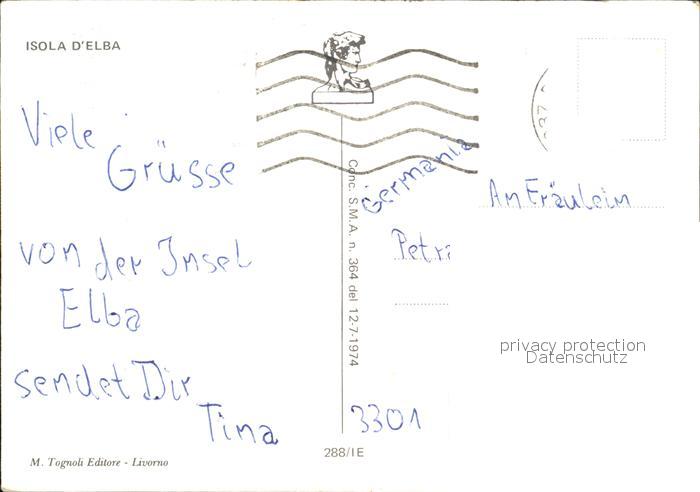 ISOLA D'ELBA
Viele
Grüsse
von der Insel
Elba
sendet Dir
Tina
M. Tognoli Editore - Livorno
Conc. S.M.A. n. 364 del 12-7-1974
288/IE
Germania
An Fräulein
Petra
3301
privacy protection
Datenschutz